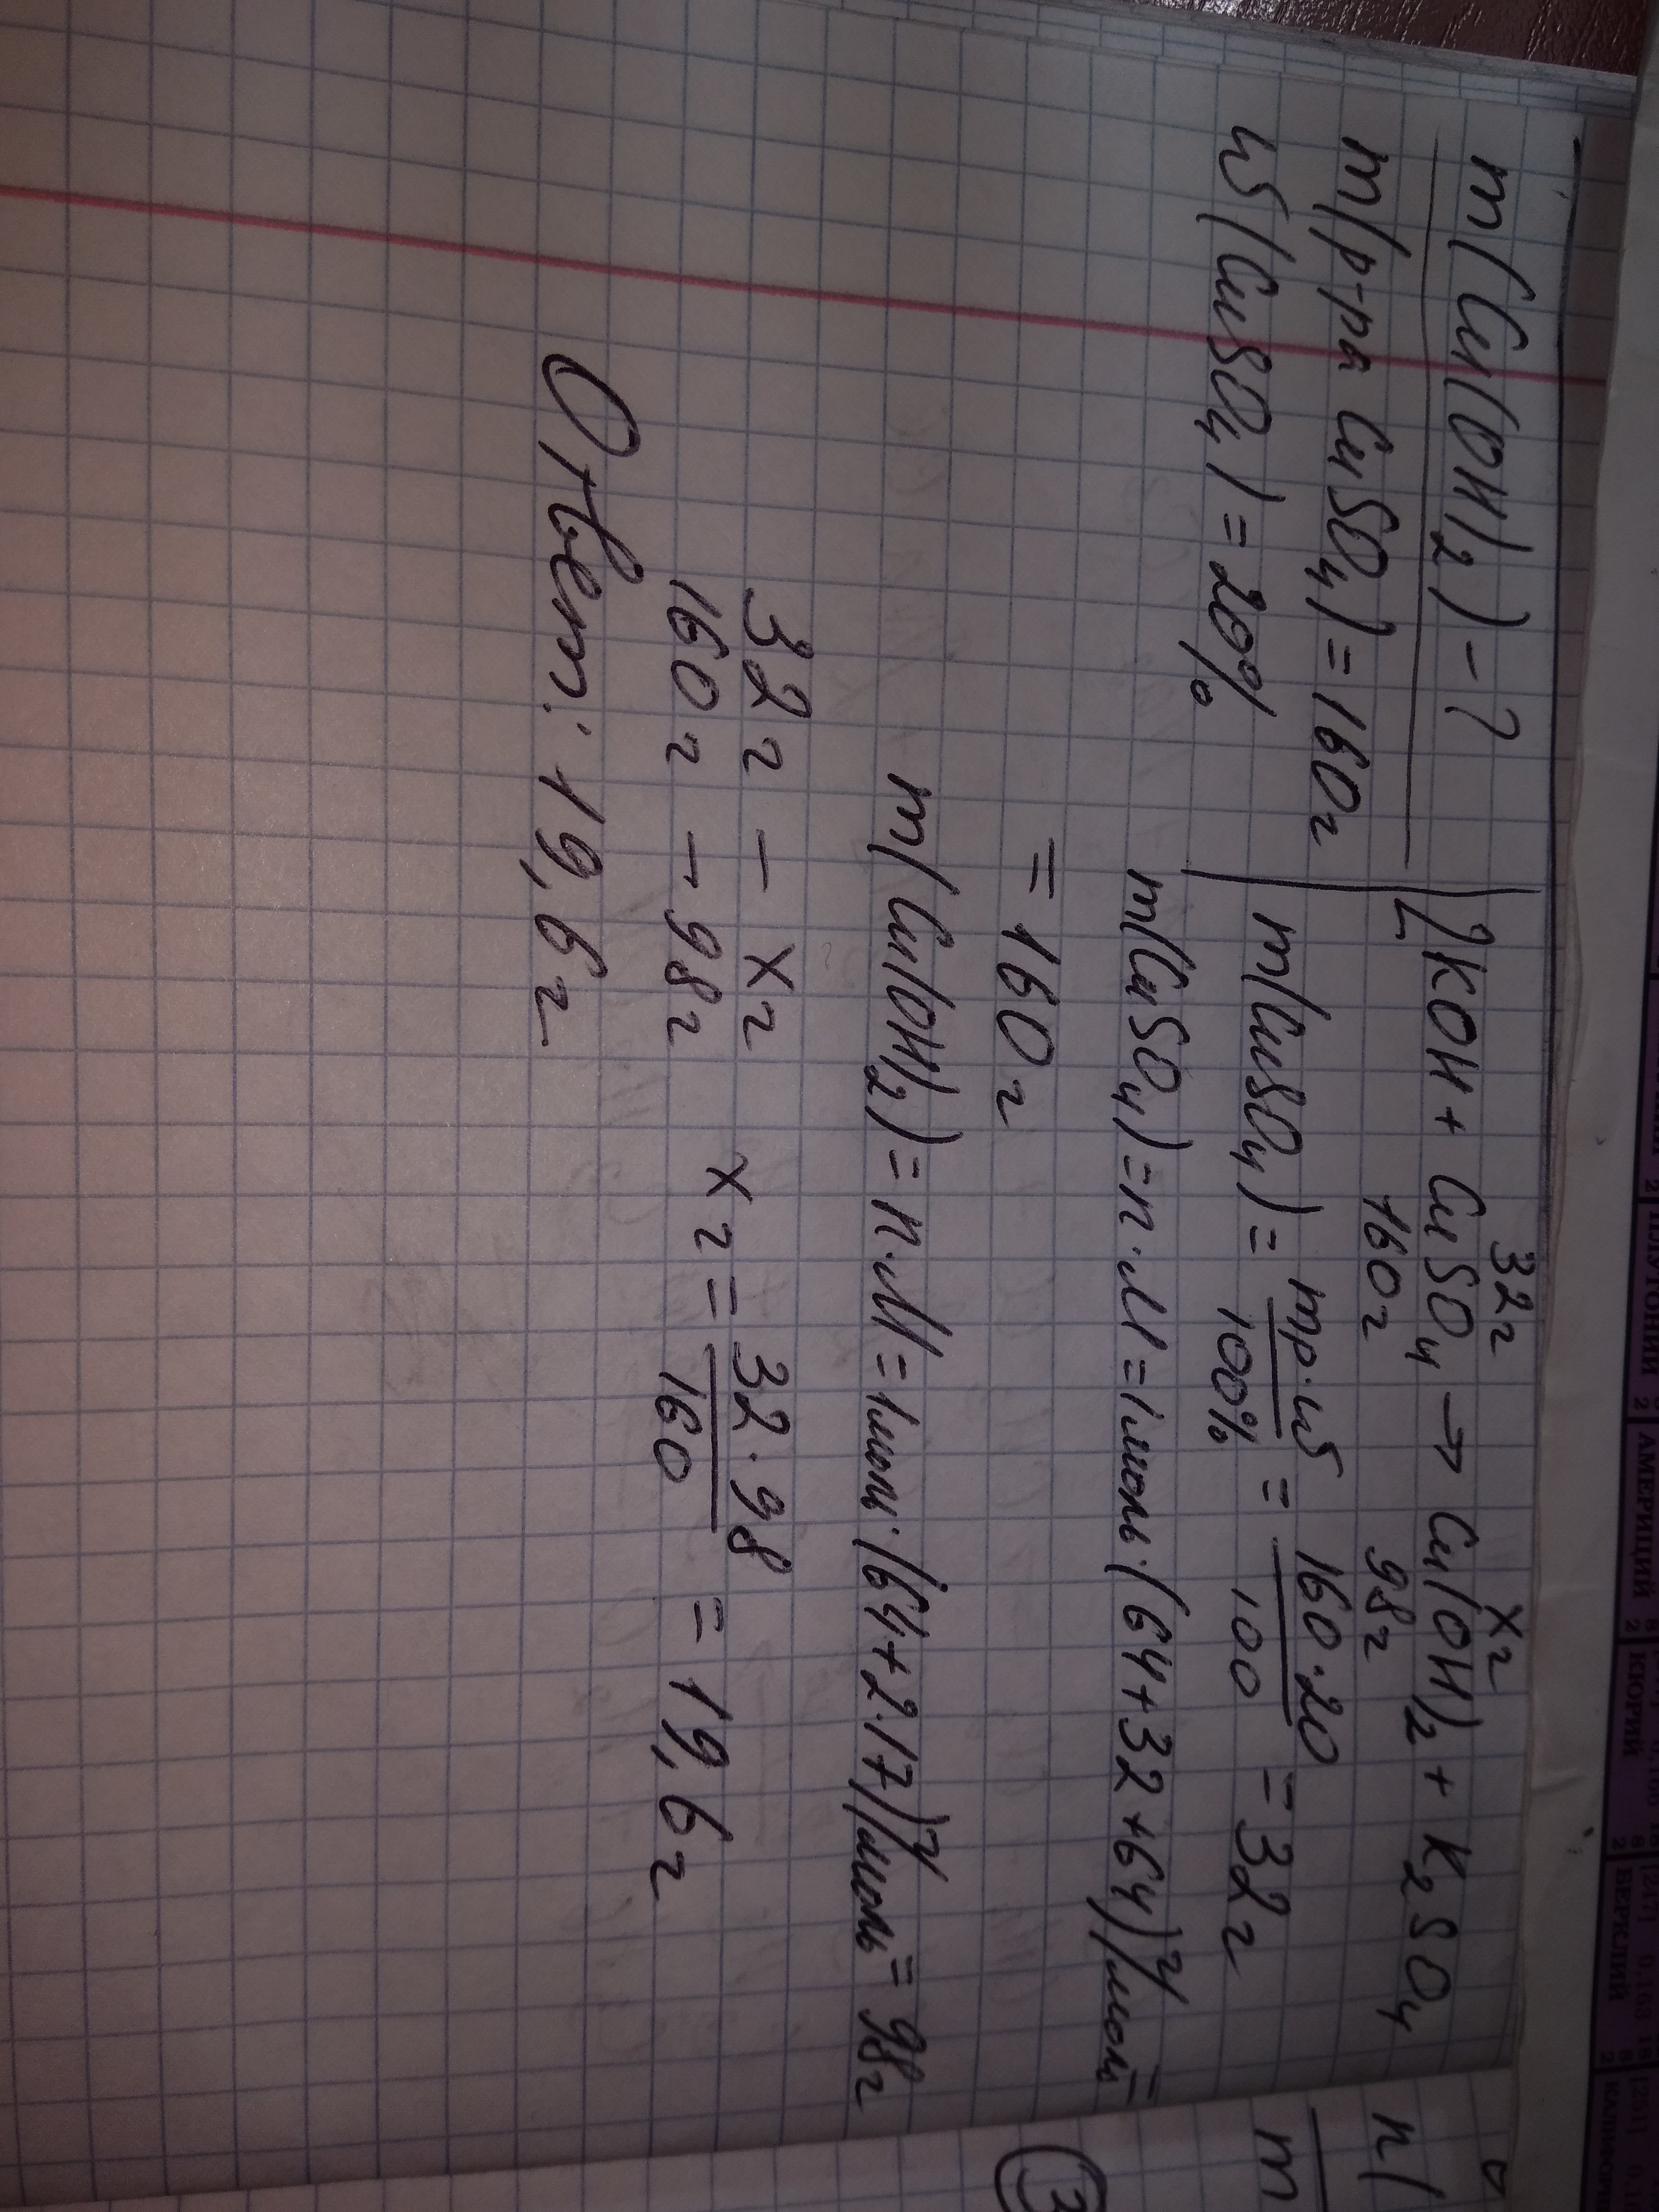 m(Cu(OH)₂) - ?
m(р-ра CuSO₄) = 160г
ω(CuSO₄) = 20%
32г хг
2KOH + CuSO₄ → Cu(OH)₂ + K₂SO₄
160г 98г
m(CuSO₄) = mр·ω / 100% = 160·20 / 100 = 32г
m(CuSO₄) = n·M = 1моль·(64+32+64)г/моль =
= 160г
m(Cu(OH)₂) = n·M = 1моль·(64+2·17)г/моль = 98г
32г – хг
160г – 98г
хг = 32·98 / 160 = 19,6г
Ответ: 19,6г
АМЕРИЦИЙ
КЮРИЙ
БЕРКЛИЙ